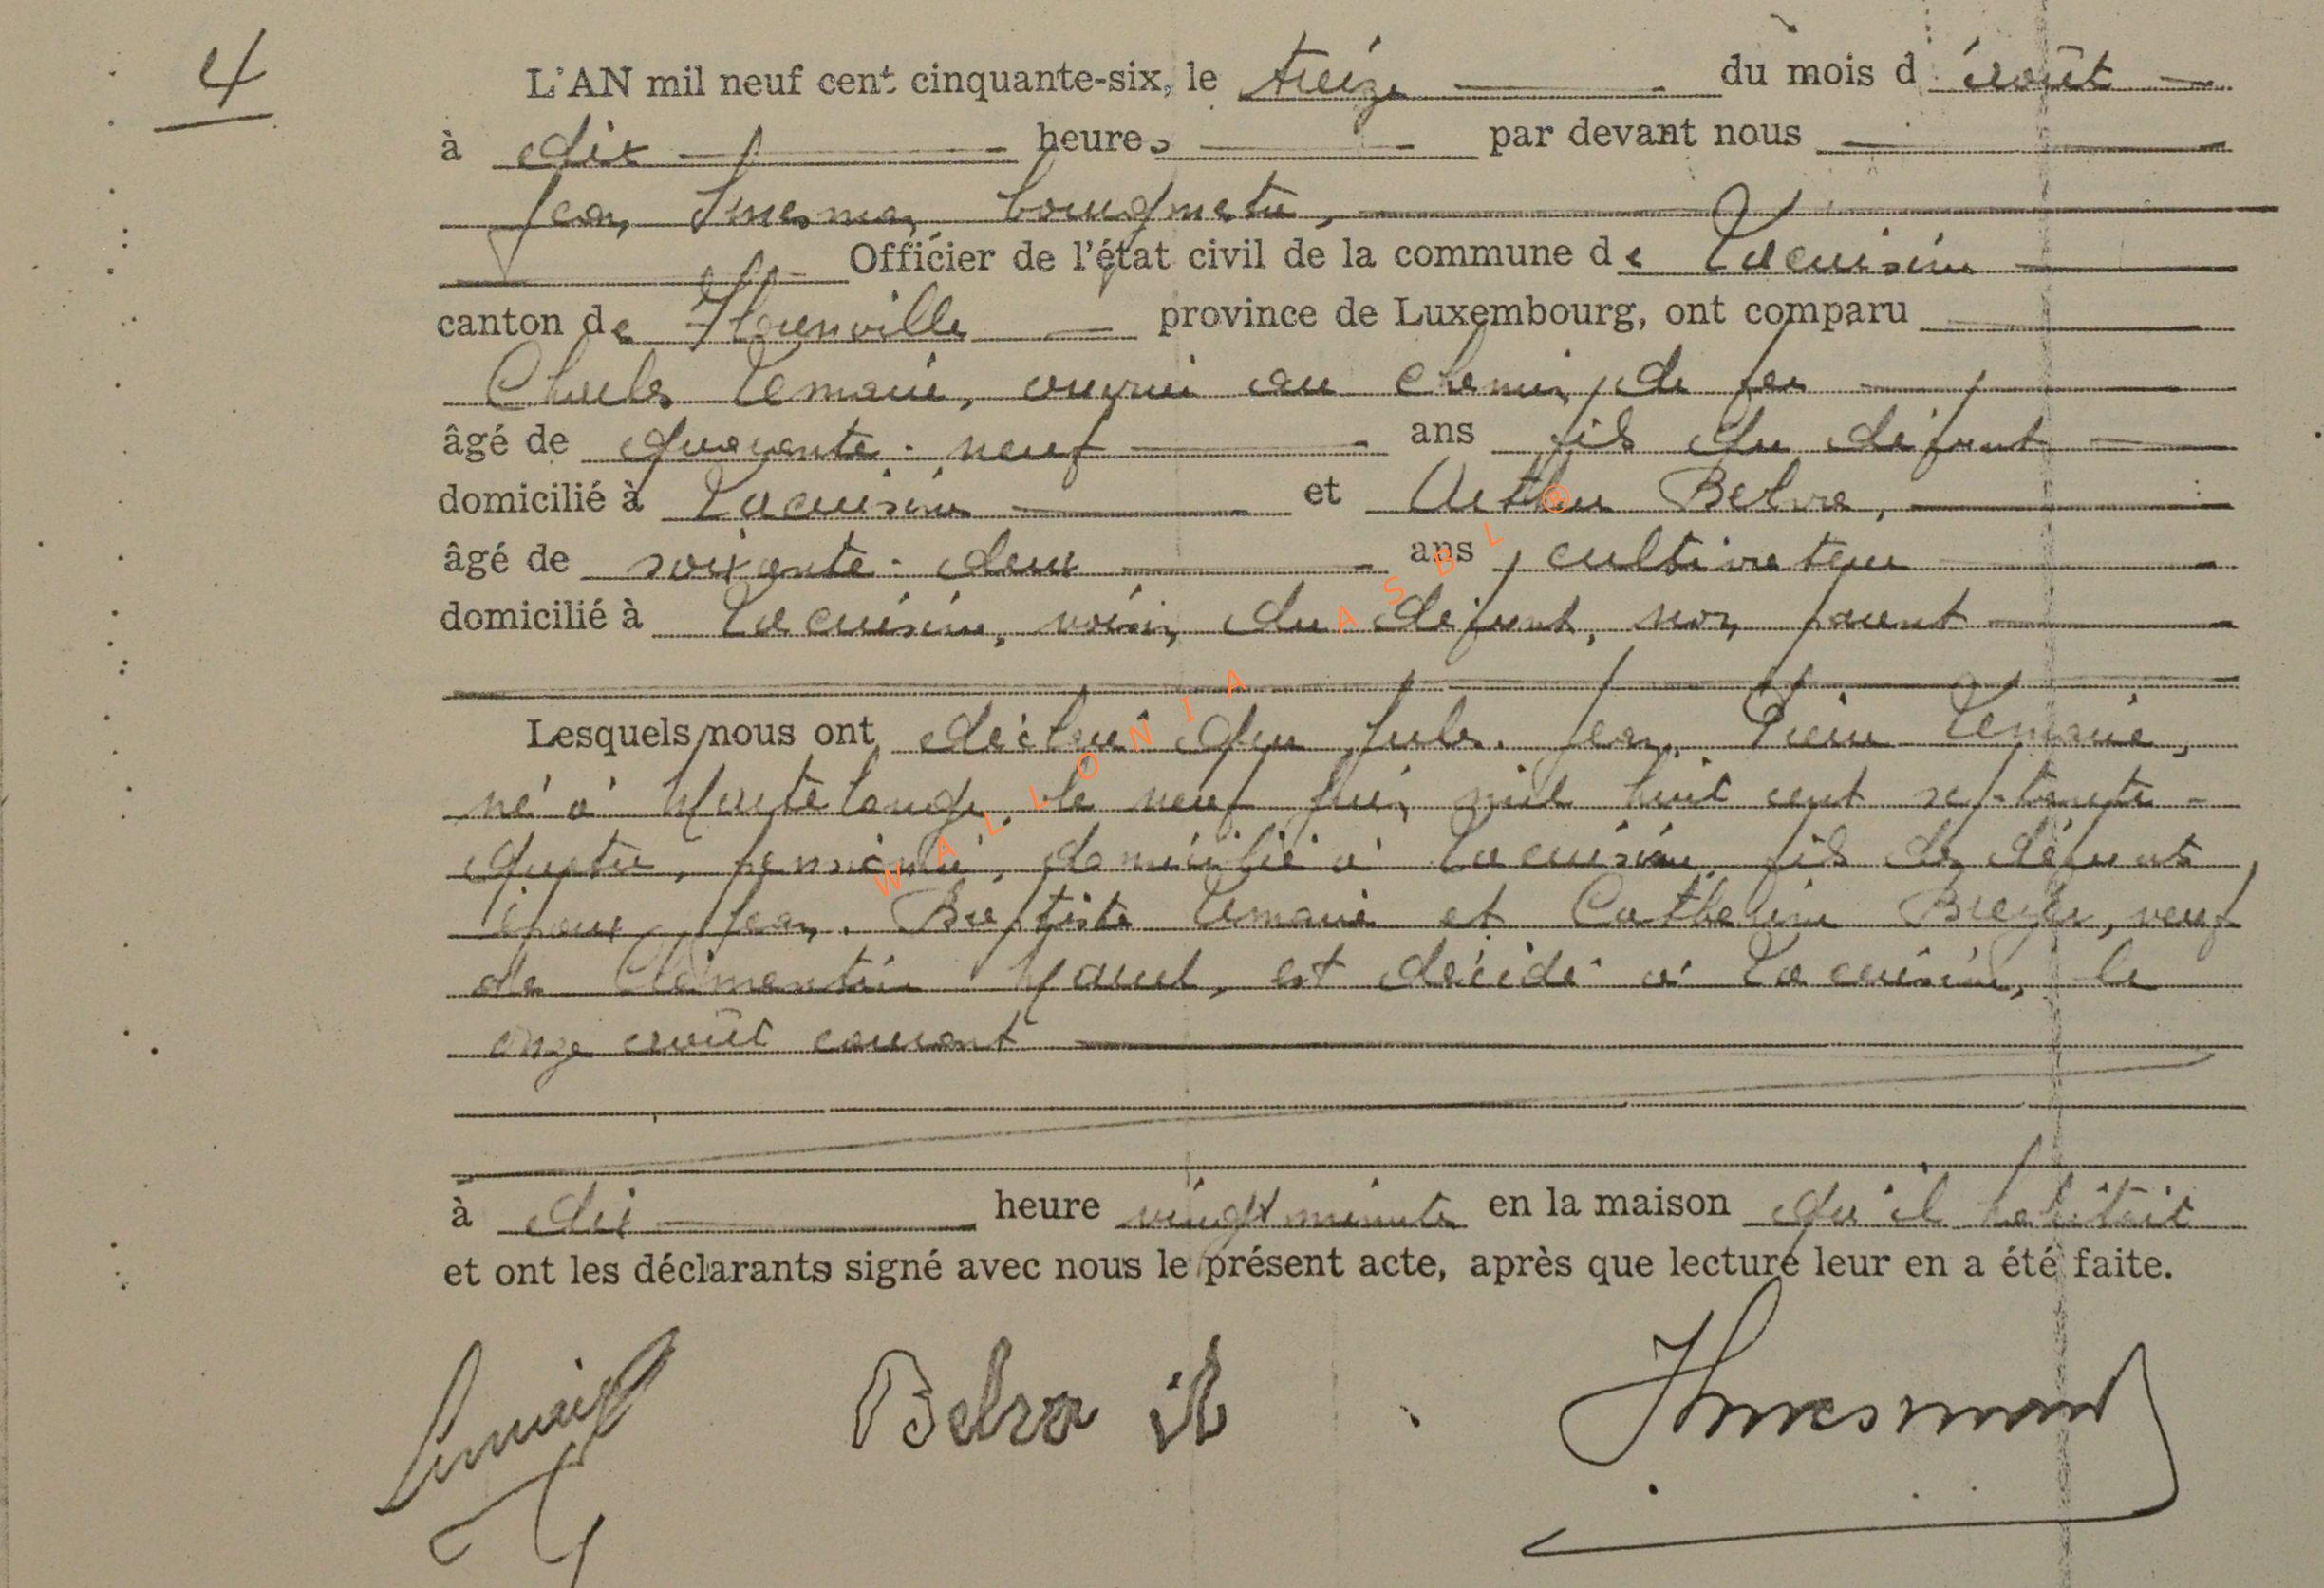 4
L'AN mil neuf cent cinquante-six, le treize du mois d'août
à dix heures par devant nous
Jean bourgmestre,
Officier de l'état civil de la commune de Lacuisine
canton de Florenville province de Luxembourg, ont comparu
Charles Lemaire, ouvrier au chemin de fer
âgé de quarante-neuf ans fils du défunt
domicilié à Lacuisine et Arthur Belva,
âgé de soixante-deux ans, cultivateur
domicilié à Lacuisine, voisin du défunt, non parent
Lesquels nous ont déclaré que Jules Jean Pierre Lemaire,
né à Martelange le neuf juin mil huit cent septante-
quatre, pensionné, domicilié à Lacuisine fils des défunts
époux Jean-Baptiste Lemaire et Catherine veuf
de Clémentine est décédé à Lacuisine, le
onze août courant
à dix heure vingt minutes en la maison qu'il habitait
et ont les déclarants signé avec nous le présent acte, après que lecture leur en a été faite.
Lemaire Belva
WALLONIA ASBL ®